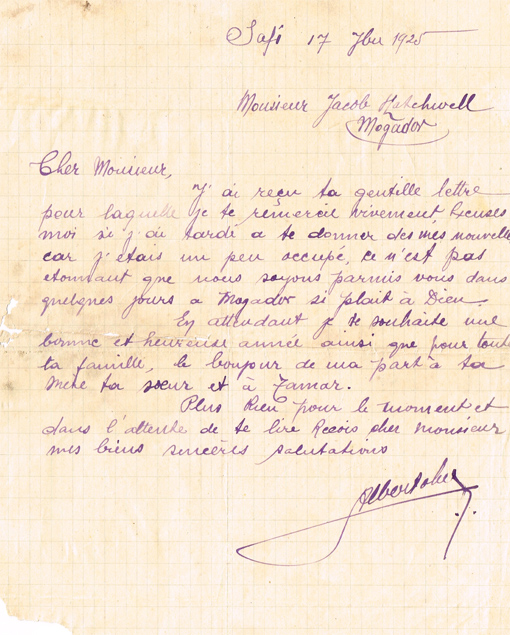 Safi 17 7bre 1925
Monsieur Jacob Hatchwell
Mogador
Cher Monsieur,
J'ai reçu ta gentille lettre
pour laquelle je te remercie vivement Excuses
moi si j'ai tardé a te donner des mes nouvelle
car j'étais un peu occupé, ce n'est pas
etonnant que nous soyons parmis vous dans
quelques jours a Mogador si plait à Dieu.
En attendant je te souhaite une
bonne et heureuse année ainsi que pour toute
ta famille, le bonjour de ma part à ta
mère ta sœur et à Tamar.
Plus Rien pour le moment et
dans l'attente de te lire Reçois cher monsieur
mes biens sincères salutations